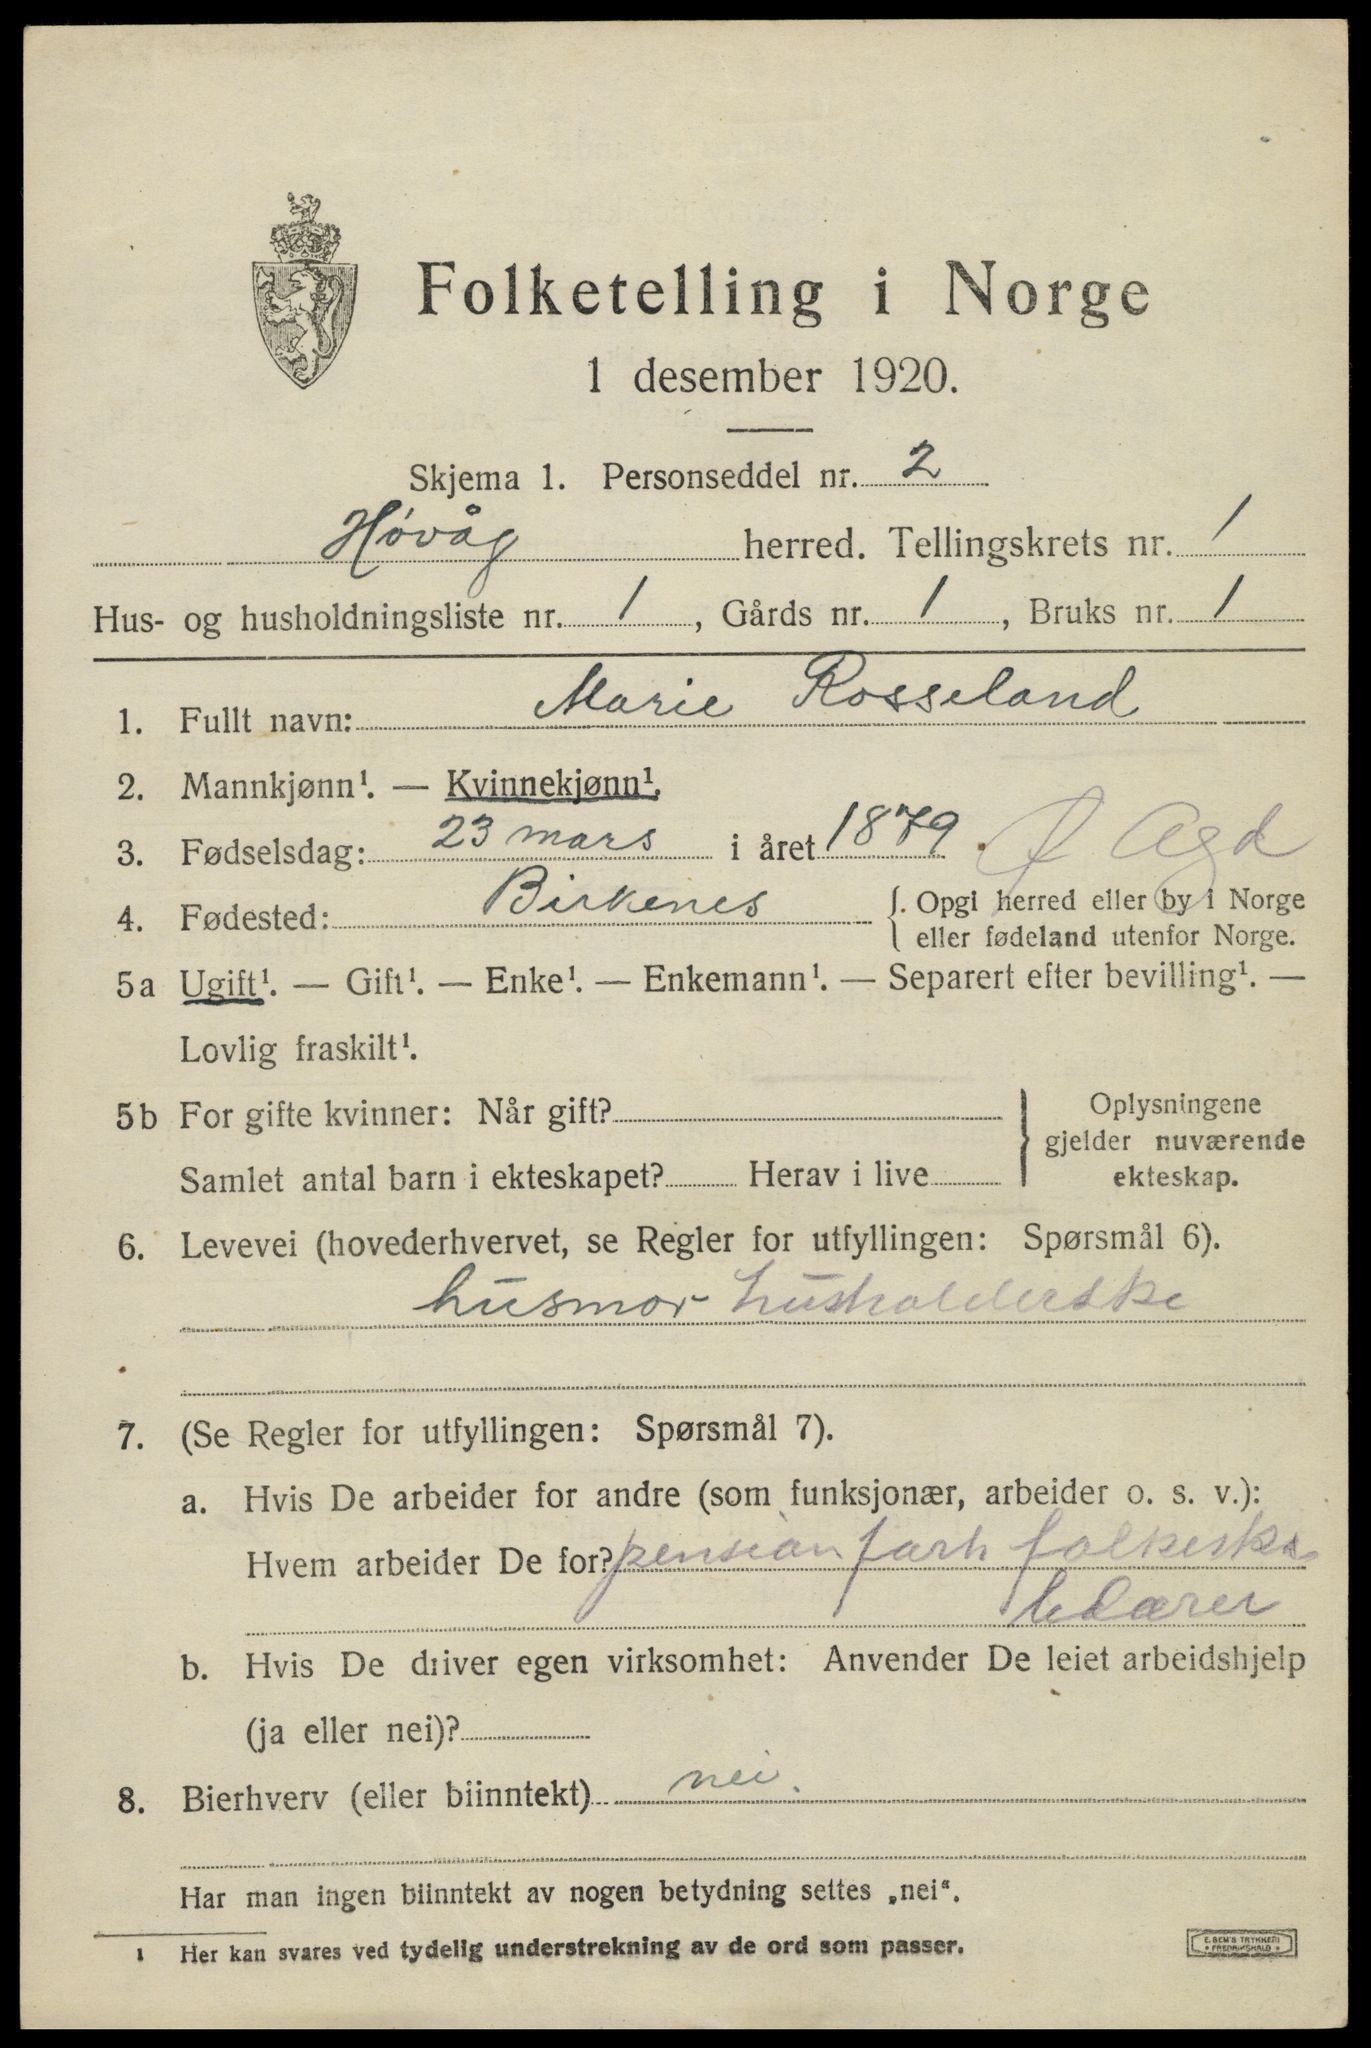 Folketelling i Norge
1 desember 1920.
Skjema 1. Personseddel nr. 2
Høvåg herred. Tellingskrets nr. 1
Hus- og husholdningsliste nr. 1, Gårds nr. 1, Bruks nr. 1
1. Fullt navn: Marie Rosseland
2. Mannkjønn¹. — Kvinnekjønn¹.
3. Fødselsdag: 23 mars i året 1879. Ø Agd
4. Fødested: Birkenes { Opgi herred eller by i Norge
eller fødeland utenfor Norge.
5a Ugift¹. — Gift¹. — Enke¹. — Enkemann¹. — Separert efter bevilling¹. —
Lovlig fraskilt¹.
5b For gifte kvinner: Når gift?
Samlet antal barn i ekteskapet? Herav i live
} Oplysningene
gjelder nuværende
ekteskap.
6. Levevei (hovederhvervet, se Regler for utfyllingen: Spørsmål 6).
husmor husholderske
7. (Se Regler for utfyllingen: Spørsmål 7).
a. Hvis De arbeider for andre (som funksjonær, arbeider o. s. v.):
Hvem arbeider De for? pension forh folkesko
lelærer
b. Hvis De driver egen virksomhet: Anvender De leiet arbeidshjelp
(ja eller nei)?
8. Bierhverv (eller biinntekt) nei.
Har man ingen biinntekt av nogen betydning settes „nei“.
¹ Her kan svares ved tydelig understrekning av de ord som passer.
E. SEM'S TRYKKERI
* FREDRIKSHALD *